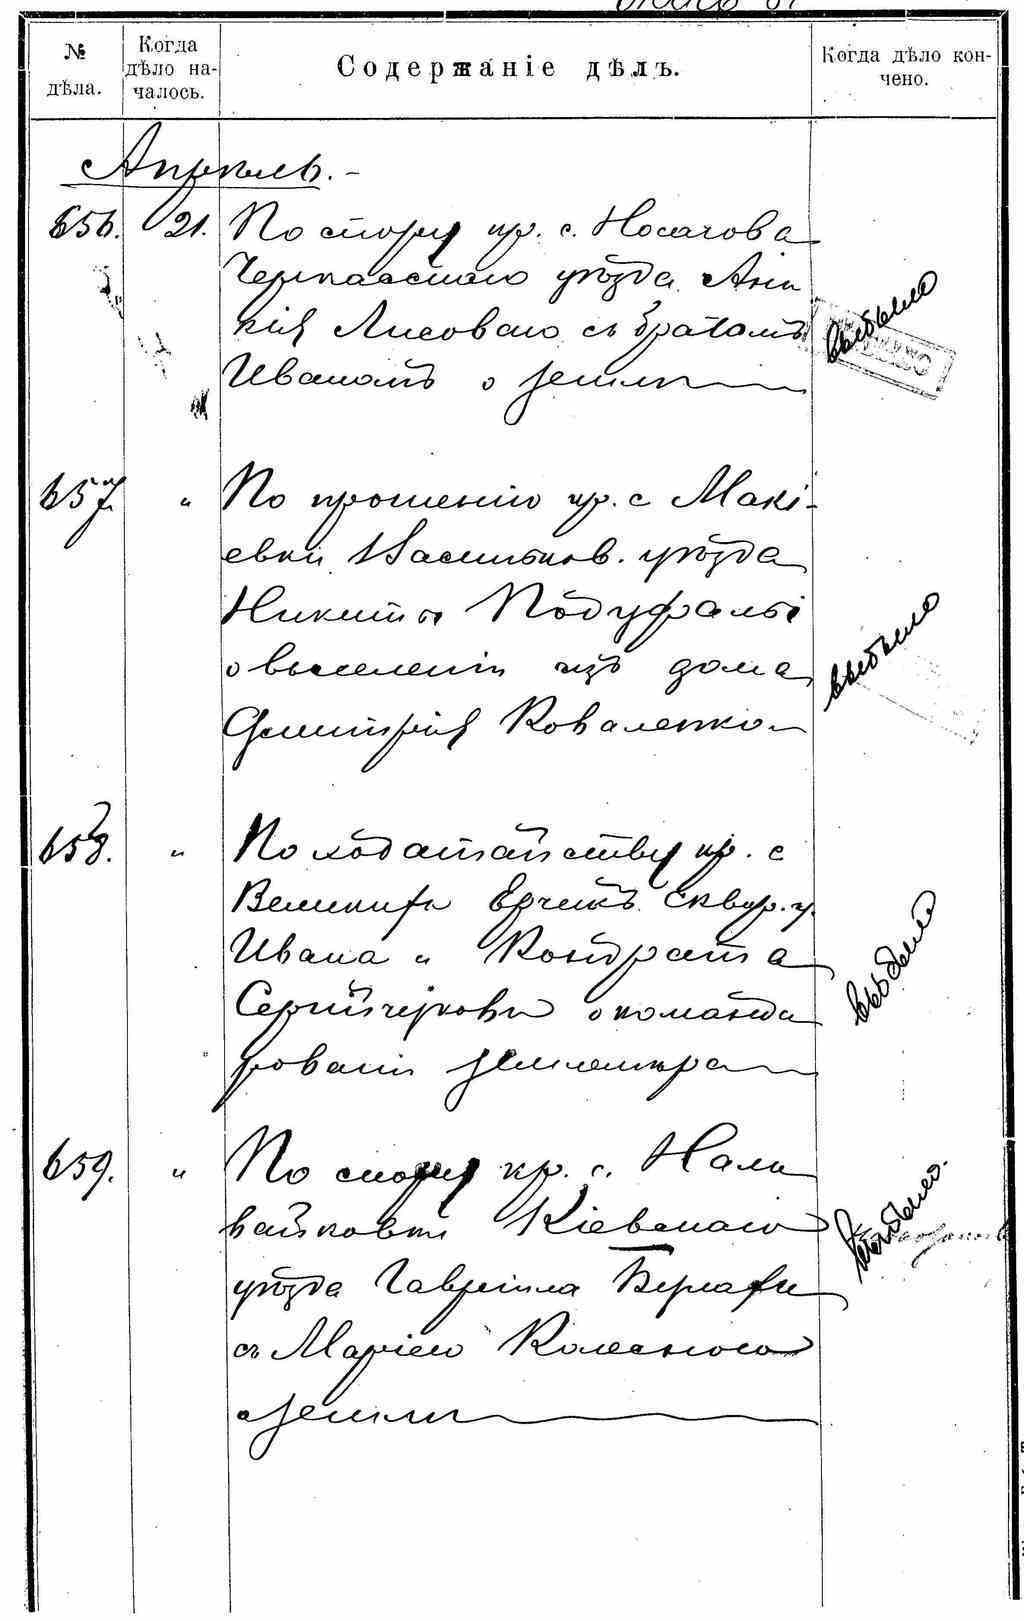 № дѣла.
Когда дѣло на-
чалось.
Содержаніе дѣлъ.
Когда дѣло кон-
чено.
Апрѣль.-
656. 21. По спору кр. с. Носачова
Черкасскаго уѣзда
Лисоваго съ братомъ
Иваномъ о землѣ
выбыло
657. " По прошенію кр. с Макі-
евки Васильков. уѣзда
Никиты
о выселеніи изъ дома
Димитрія Коваленко
выбыло
658. " По ходатайству кр. с
Великихъ Ерчикъ Сквир. у.
Ивана и Кондрата
о команди
рованіи землемѣра
выбыло
659. " По спору кр. с. Нали
вайковки Кіевскаго
уѣзда Гавріила
съ Маріею Колесною
о землѣ
выбыло.